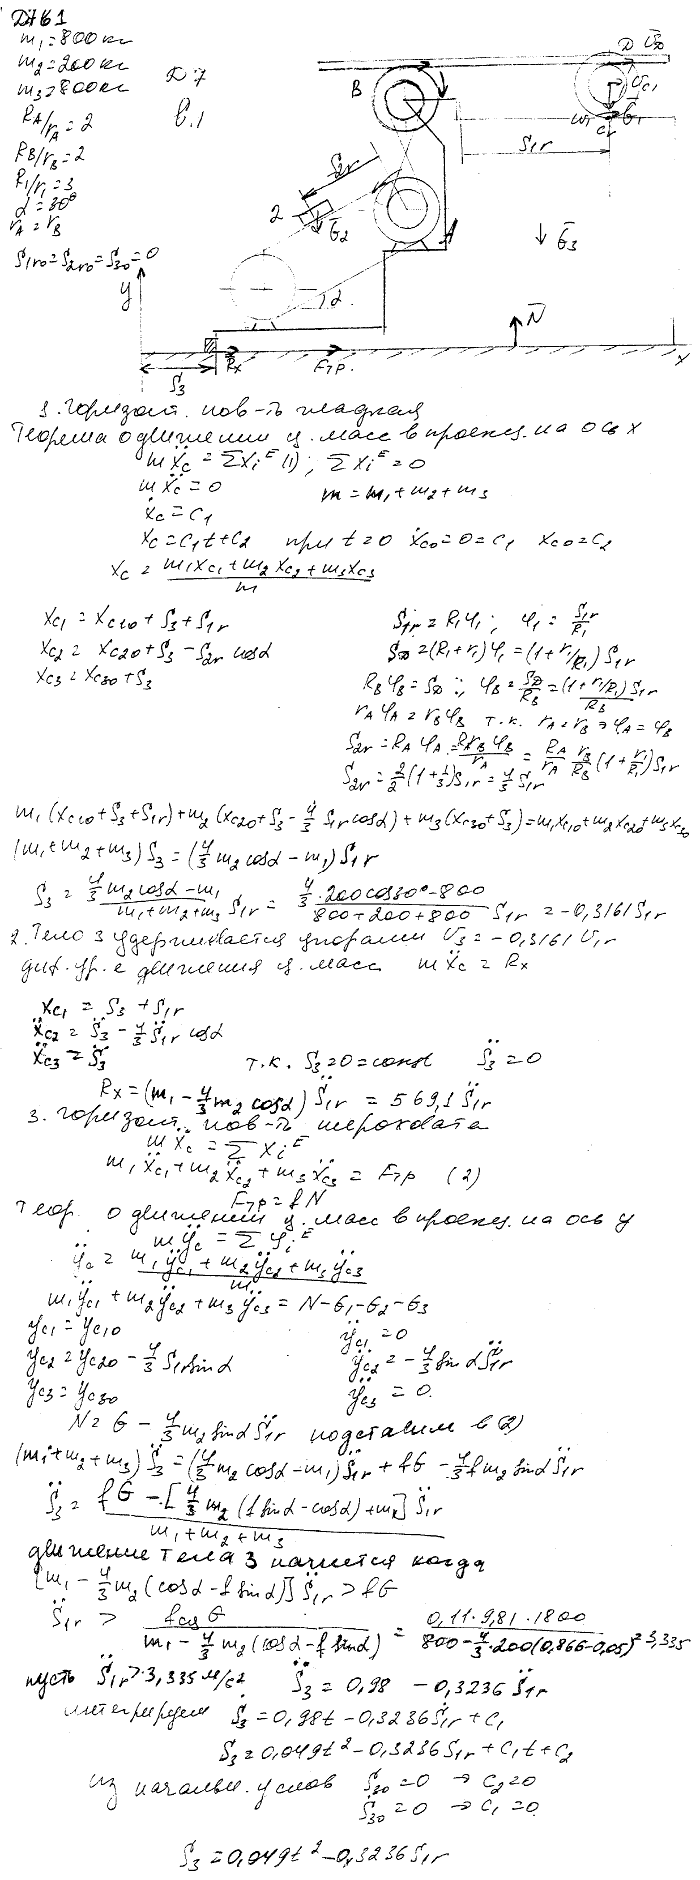 m₁=800кг
m₂=200кг
m₃=800кг
Д 7
в.1
R_A/r_A=2
R_B/r_B=2
R₁/r₁=3
α=30°
r_A=r_B
S₁r₀=S₂r₀=S₃₀=0
y
B
D
S₁r
S₂r
2
G̅₂
A
G̅₃
α
N̅
Rx
Fтр.
x
S₃
1. Горизонт. пов-ть гладкая
Теорема о движении ц. масс в проекц. на ось x
mẍc = ΣXiᴱ (1); ΣXiᴱ=0
mẍc=0 m=m₁+m₂+m₃
ẋc=C₁
xc=C₁t+C₂ при t=0 ẋc₀=0=C₁ xc₀=C₂
xc = (m₁xc₁+m₂xc₂+m₃xc₃)/m
xc₁ = xc₁₀+S₃+S₁r S₁r=R₁φ₁; φ₁=S₁r/R₁
xc₂= xc₂₀+S₃-S₂r cosα S_D=(R₁+r₁)φ₁=(1+r₁/R₁)S₁r
xc₃=xc₃₀+S₃ R_Bφ_B=S_D; φ_B=S_D/R_B=(1+r₁/R₁)S₁r/R_B
r_Aφ_A=r_Bφ_B т.к. r_A=r_B ⇒ φ_A=φ_B
S₂r=R_Aφ_A=R_A r_B φ_B/r_A = R_A/r_A r_B/R_B (1+r₁/R₁)S₁r
S₂r=2/2(1+1/3)S₁r=4/3 S₁r
m₁(xc₁₀+S₃+S₁r)+m₂(xc₂₀+S₃-4/3 S₁r cosα)+m₃(xc₃₀+S₃)=m₁xc₁₀+m₂xc₂₀+m₃xc₃₀
(m₁+m₂+m₃)S₃=(4/3 m₂cosα-m₁)S₁r
S₃=(4/3 m₂cosα-m₁)/(m₁+m₂+m₃) S₁r=(4/3·200cos30°-800)/(800+200+800) S₁r=-0,3161S₁r
2. Тело 3 удерживается упорами V₃=-0,3161V₁r
диф. ур. е движения ц. масс mẍc=Rx
ẍc₁ = S̈₃+S̈₁r
ẍc₂= S̈₃-4/3 S̈₁r cosα
ẍc₃=S̈₃ т.к. S₃=0=const S̈₃=0
Rx=(m₁-4/3 m₂cosα)S̈₁r = 569,1S̈₁r
3. Горизонт. пов-ть шероховата
mẍc=ΣXiᴱ
m₁ẍc₁+m₂ẍc₂+m₃ẍc₃=Fтр (2)
Fтр=fN
Теор. о движении ц. масс в проекц. на ось y
mÿc=Σyiᴱ
ÿc=(m₁ÿc₁+m₂ÿc₂+m₃ÿc₃)/m
m₁ÿc₁+m₂ÿc₂+m₃ÿc₃=N-G₁-G₂-G₃
yc₁=yc₁₀ ÿc₁=0
yc₂=yc₂₀-4/3 S₁r sinα ÿc₂=-4/3 sinα S̈₁r
yc₃=yc₃₀ ÿc₃=0.
N=G-4/3 m₂sinα S̈₁r подставим в (2)
(m₁+m₂+m₃)S̈₃=(4/3 m₂cosα-m₁)S̈₁r+fG-4/3 f m₂sinα S̈₁r
S̈₃=(fG-[4/3 m₂(f sinα-cosα)+m₁]S̈₁r)/(m₁+m₂+m₃)
движение тела 3 начнется когда
[m₁-4/3 m₂(cosα-f sinα)]S̈₁r>fG
S̈₁r > fсцG/(m₁-4/3 m₂(cosα-f sinα))=0,11·9,81·1800/(800-4/3·200(0,866-0,05))=3,335
пусть S̈₁r>3,335м/с² S̈₃=0,98-0,3236S̈₁r
интегрируем Ṡ₃=0,98t-0,3236Ṡ₁r+C₁
S₃=0,049t²-0,3236S₁r+C₁t+C₂
из начальн. услов S₃₀=0 → C₂=0
Ṡ₃₀=0 → C₁=0.
S₃=0,049t²-0,3236S₁r